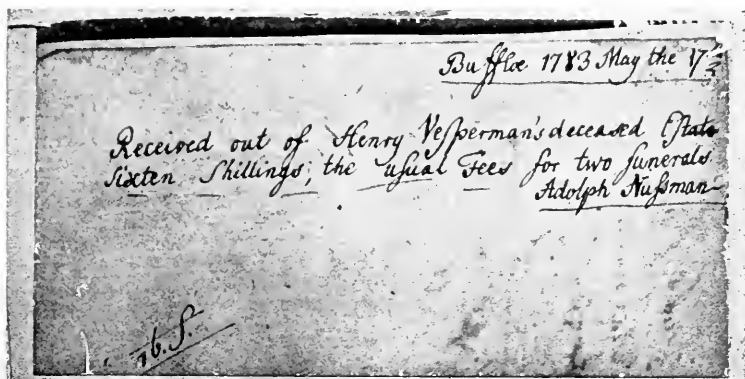 Buffloe 1783 May the 17
Received out of Henry Vesperman's deceased Estate
sixten Shillings; the usual Fees for two funerals.
Adolph Nussman
16. S.